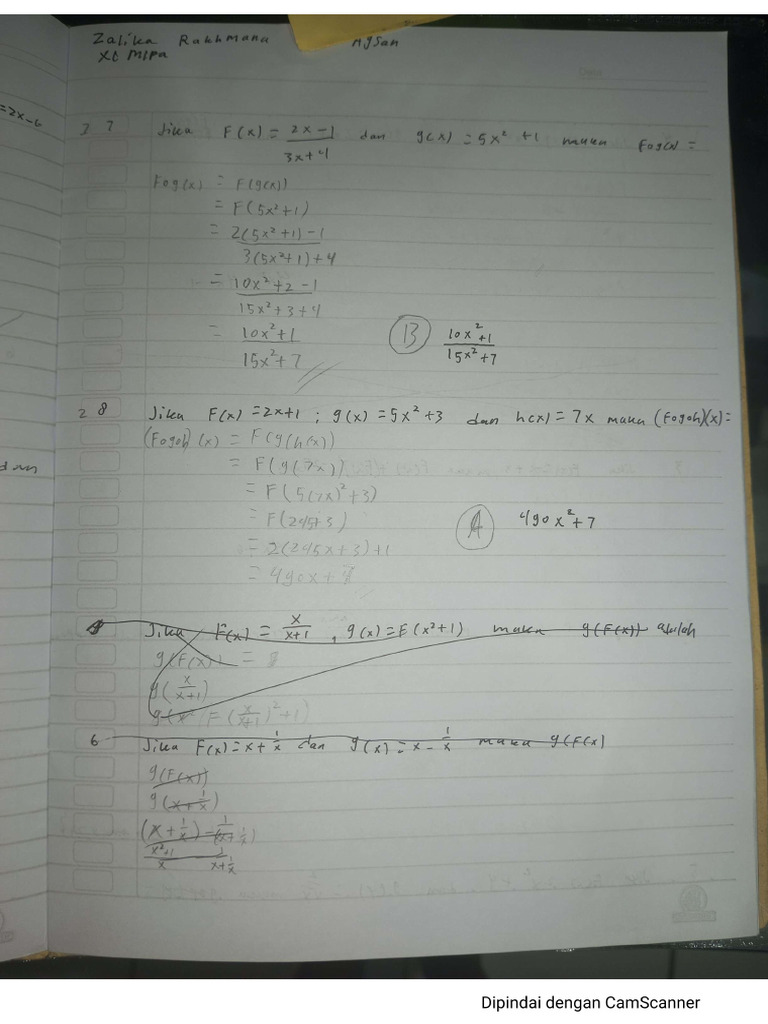 Zalika Rakhmana Agsan
XI MIPA
=2x-6
3 7 Jika F(x) = (2x-1)/(3x+4) dan g(x) = 5x² +1 maka Fog(x) =
Fog(x) = F(g(x))
= F(5x²+1)
= (2(5x²+1)-1)/(3(5x²+1)+4)
= (10x²+2-1)/(15x²+3+4)
= (10x²+1)/(15x²+7) B (10x²+1)/(15x²+7)
2 8 Jika F(x) = 2x+1 ; g(x) = 5x²+3 dan h(x) = 7x maka (Fogoh)(x)=
(Fogoh)(x) = F(g(h(x))
dan
= F(g(7x))
= F(5(7x)²+3)
= F(245+3)
A 490x²+7
= 2(245x+3)+1
= 490x+
Jika F(x) = x/(x+1) , g(x) = F(x²+1) maka g(F(x)) adalah
g(F(x)) =
g(x/(x+1))
F(x/(x+1))²+1)
6 Jika F(x) = x+1/x dan g(x) = x-1/x maka g(F(x)
g(F(x))
g(x+1/x)
(x+1/x) - 1/(x+1/x)
(x²+1)/x 1/(x+1/x)
Dipindai dengan CamScanner